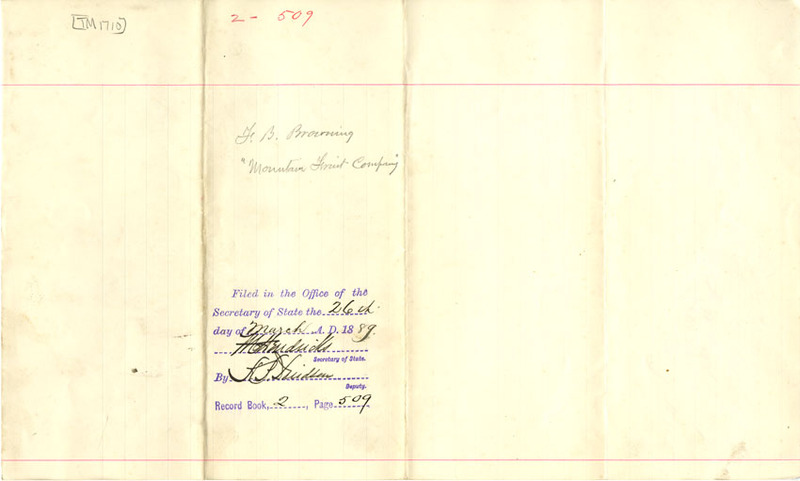 [TM 1710]
2 - 509
F. B. Browning
"Mountain Fruit Company"
Filed in the Office of the
Secretary of State the 26th
day of March A. D. 1889.
Hendricks
Secretary of State.
By
Deputy.
Record Book, 2, Page 509